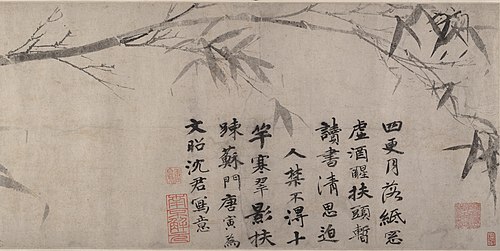 四更月落紙窓
虛酒醒扶頭暫
讀書清思迫
人禁不得十
竿寒翠影扶
疎蘇門唐寅為
文昭沈君寫意